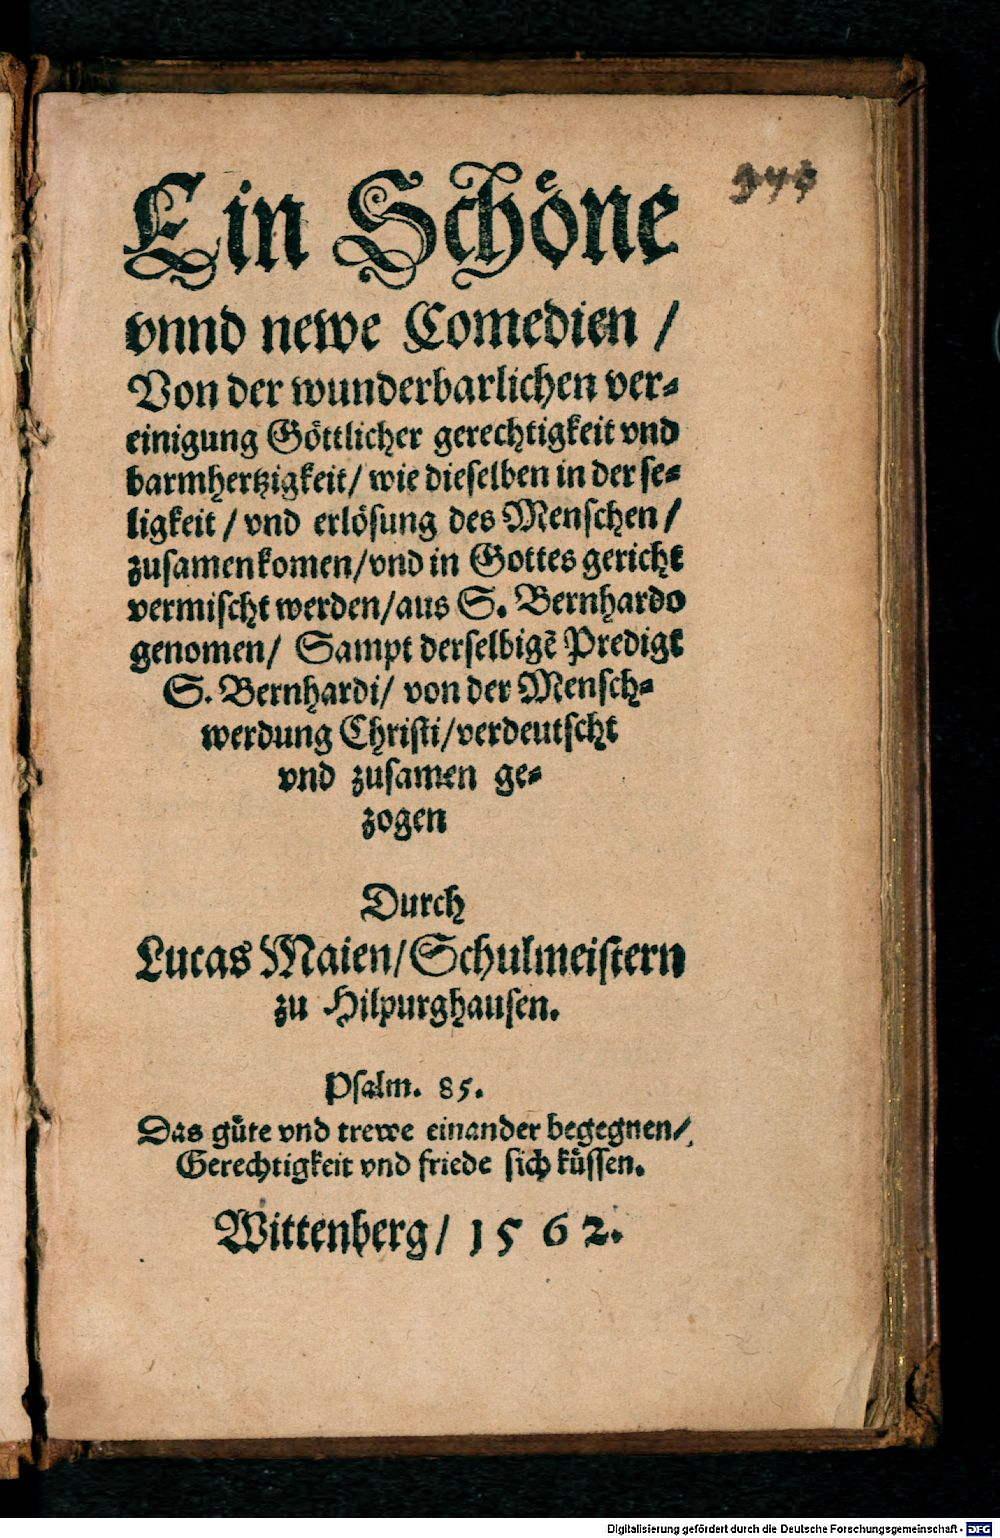 Ein Schöne
vnnd newe Comedien /
Von der wunderbarlichen ver-
einigung Göttlicher gerechtigkeit vnd
barmhertzigkeit / wie dieselben in der se-
ligkeit / vnd erlösung des Menschen /
zusamenkomen / vnd in Gottes gericht
vermischt werden / aus S. Bernhardo
genomen / Sampt derselbigē Predigt
S. Bernhardi / von der Mensch-
werdung Christi / verdeutscht
vnd zusamen ge-
zogen
Durch
Lucas Maien / Schulmeistern
zu Hilpurghausen.
Psalm. 85.
Das güte vnd trewe einander begegnen /
Gerechtigkeit vnd friede sich küssen.
Wittenberg / 1562.
Digitalisierung gefördert durch die Deutsche Forschungsgemeinschaft - DFG